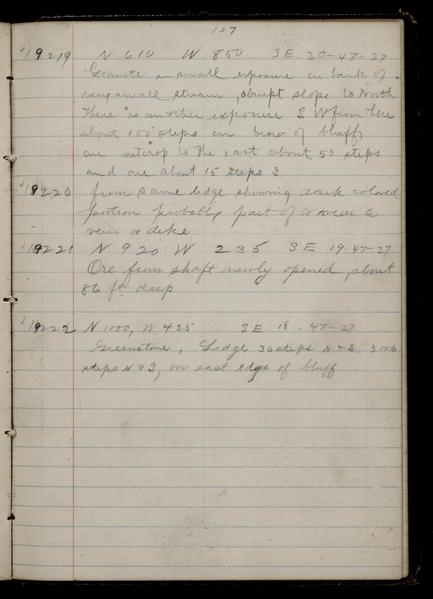 107
19219 N 610 W 850 SE. 30-47-27
Granite in small exposure in bank of
very small stream, abrupt slope to North
there is another exposure S W from here
about 100 steps on brow of bluff
an outcrop to the east about 50 steps
and one about 15 steps S
19220 from same ledge showing dark colored
portion probably part of or near a
vein or dike
19221 N 920 W 235 SE 19-47-27
Ore from shaft newly opened, about
86 ft deep
19222 N 1000, W 425 SE 18. 47-27
Greenstone, Ledge 30 steps N & S.
steps N & S, on east edge of bluff